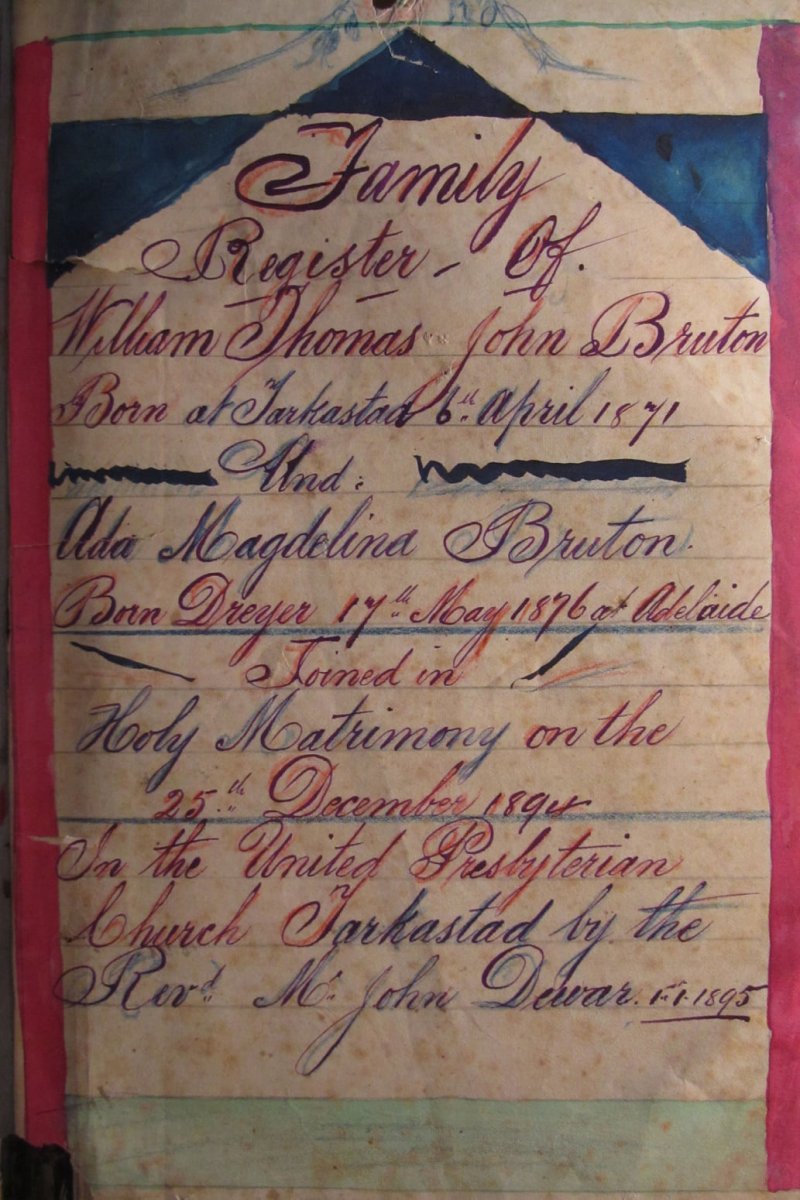 Family
Register - Of.
William Thomas John Bruton
Born at Tarkastad 6th April 1871
And:
Ada Magdelina Bruton.
Born Dreyer 17th May 1876 at Adelaide
Joined in
Holy Matrimony on the
25th December 1894
In the United Presbyterian
Church Tarkastad by the
Revd Mr John Dewar. 1.1.1895